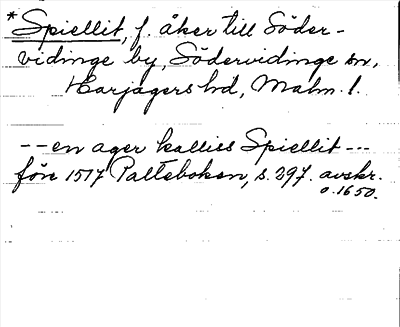 *Spiellit, f. åker till Söder-
vidinge by, Södervidinge sn,
Harjagers hd, Malm. l.
--en ager kallies Spiellit---
före 1517 Palteboken, s. 297. avskr.
o. 1650.